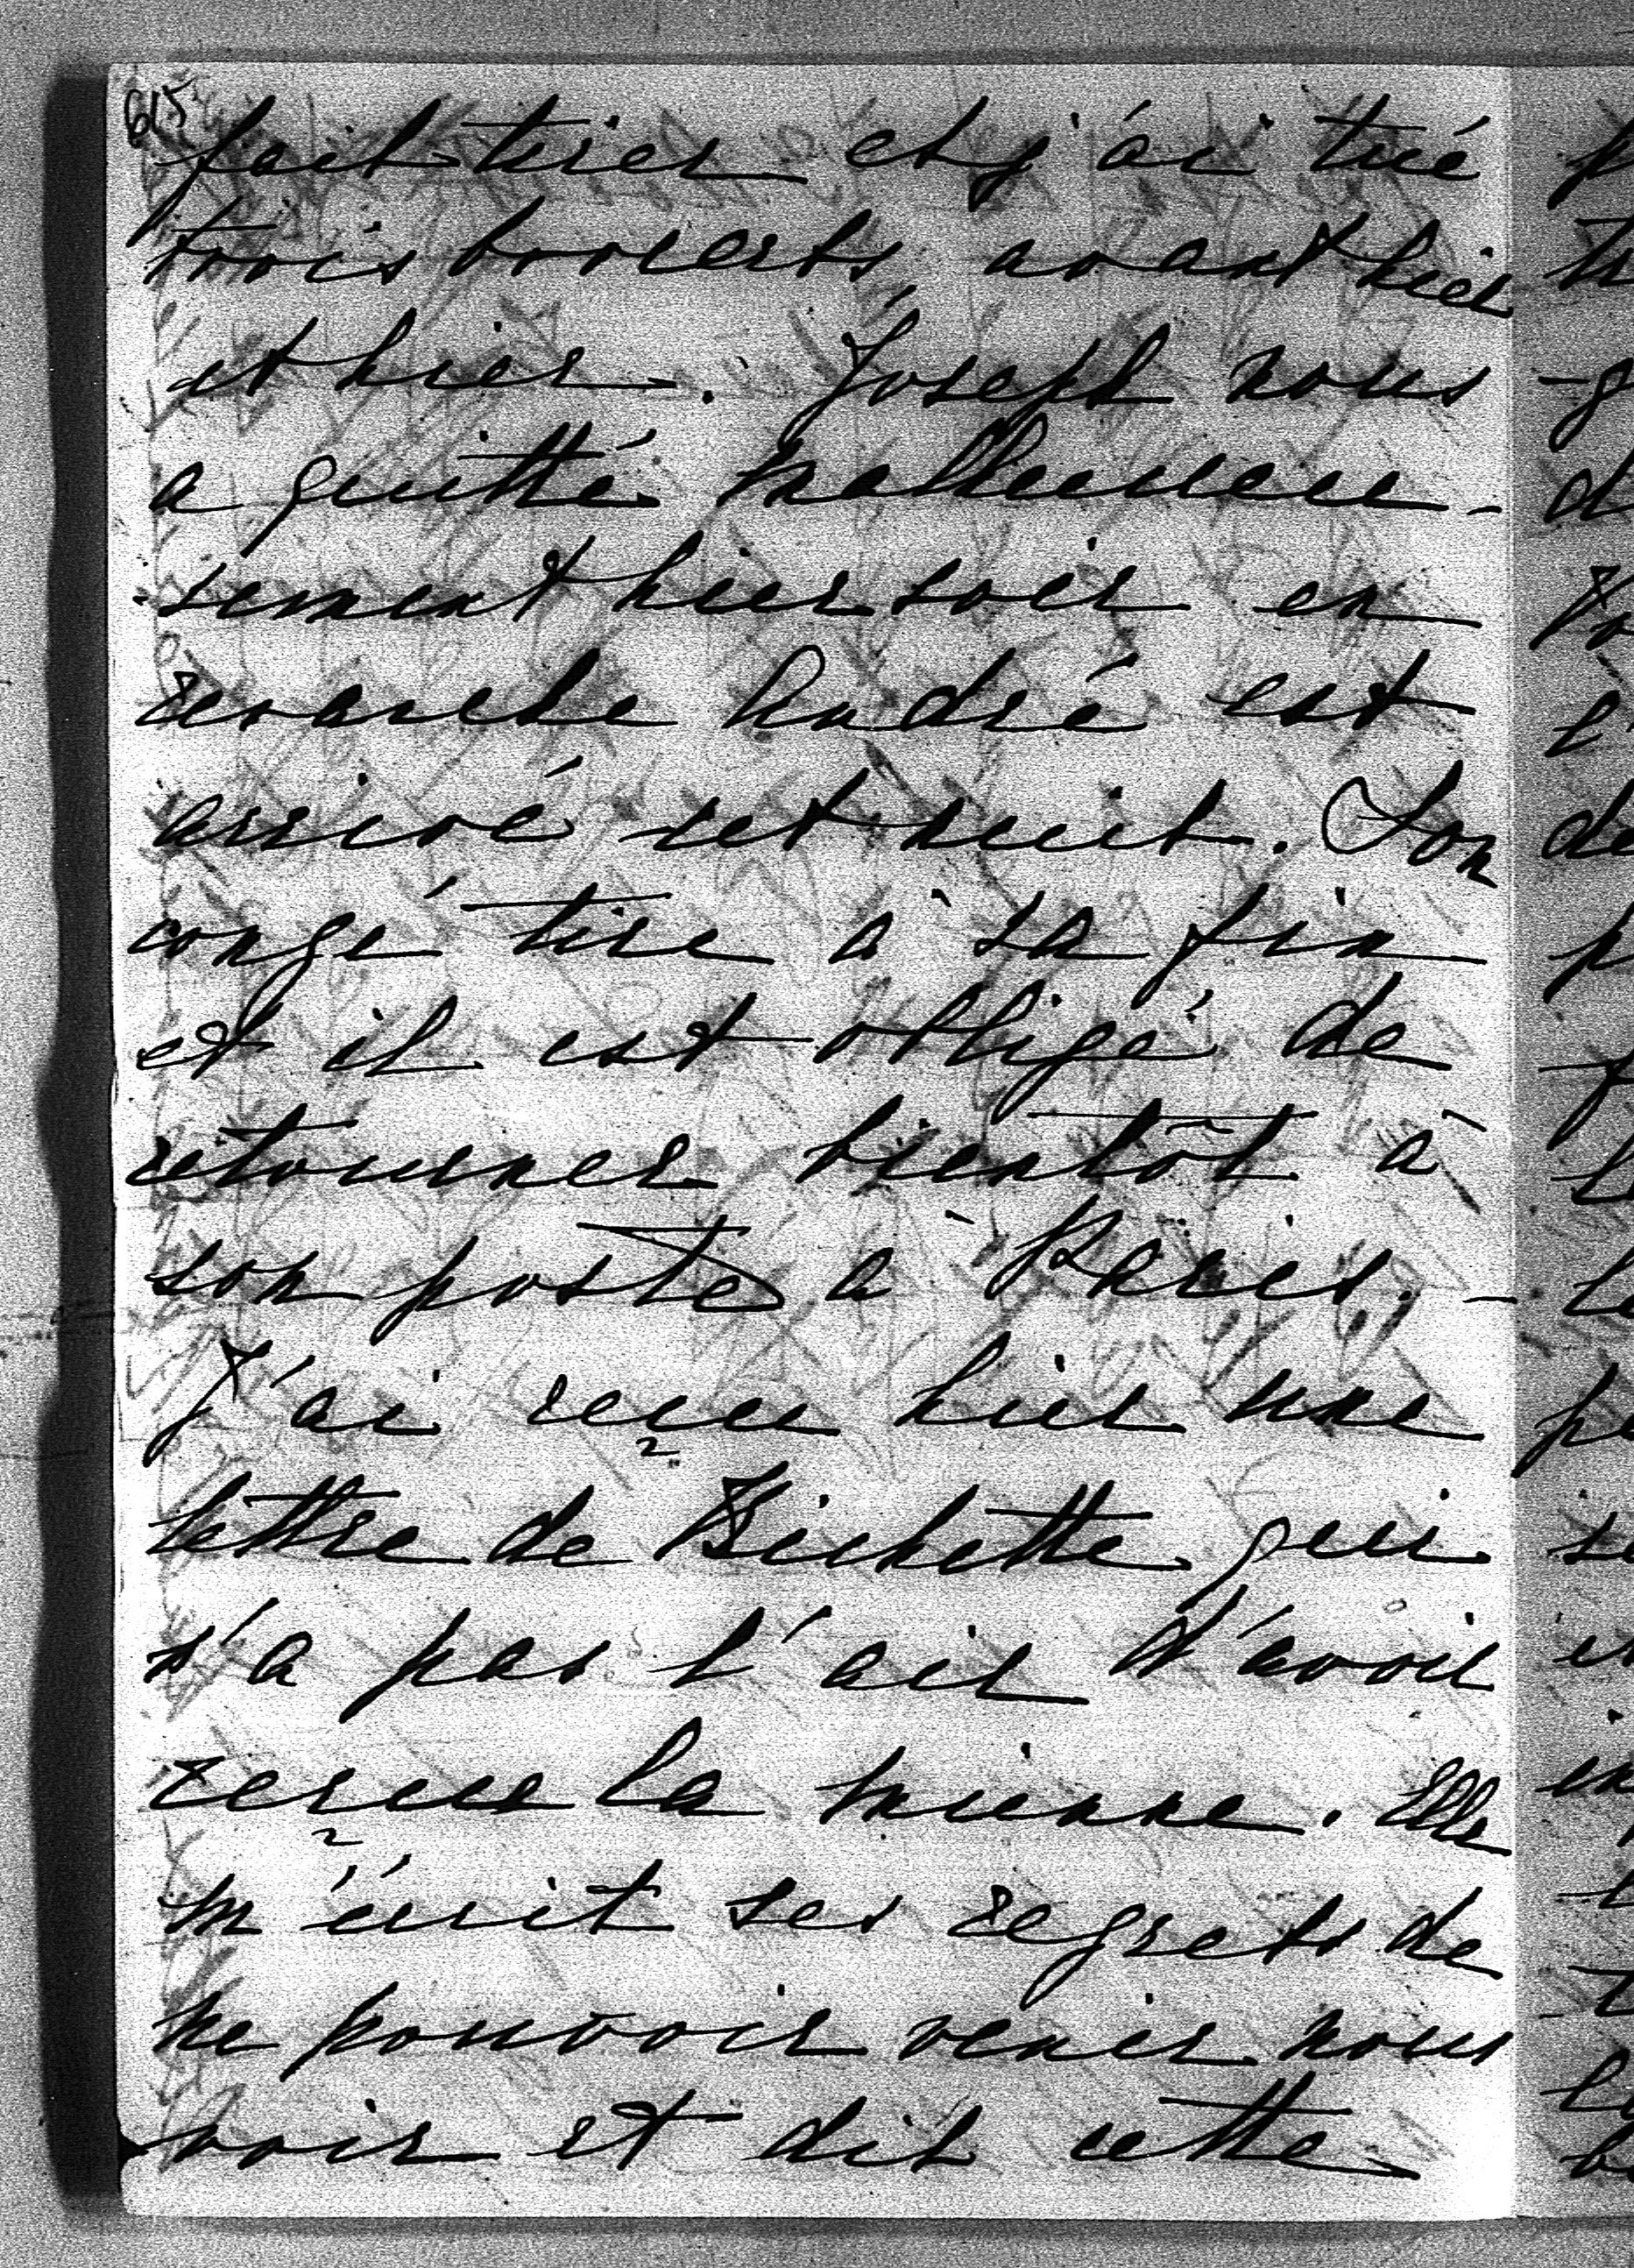 615
fait tirer et j'ai tué
trois brocarts, avant hier
et hier. Joseph nous
a quitté malheureu-
-sement hier soir en
revanche André est
arrivé cet nuit. Son
congé tire à sa fin
et il est obligé de
retourner bientôt à
son poste à Paris. -
J'ai reçu hier une
lettre de Bichette qui
n'a pas l'air d'avoir
reçue la mienne. Elle
m'écrit ses regrets de
ne pouvoir venir nous
voir et dit cette